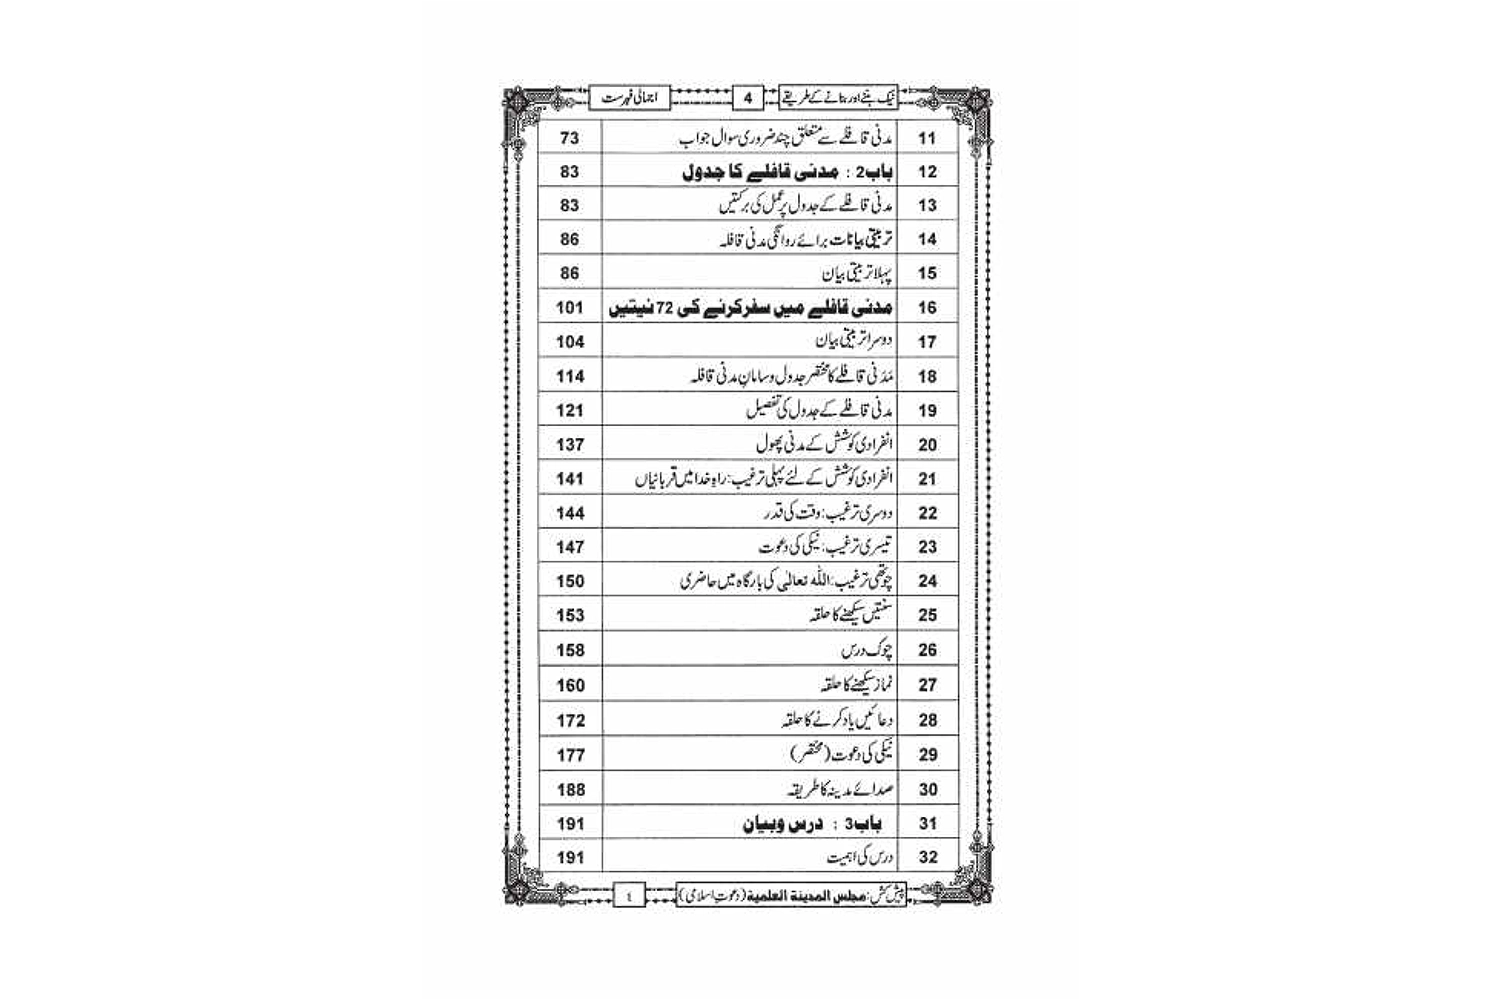 نیک بننے اور بنانے کے طریقے 4 اجمالی فہرست
11 مدنی قافلے سے متعلق چند ضروری سوال جواب 73
12 باب2 : مدنی قافلے کا جدول 83
13 مدنی قافلے کے جدول پر عمل کی برکتیں 83
14 تربیتی بیانات برائے روانگی مدنی قافلہ 86
15 پہلا تربیتی بیان 86
16 مدنی قافلے میں سفر کرنے کی 72 نیتیں 101
17 دوسرا تربیتی بیان 104
18 مَدَنی قافلے کا مختصر جدول و سامانِ مدنی قافلہ 114
19 مدنی قافلے کے جدول کی تفصیل 121
20 انفرادی کوشش کے مدنی پھول 137
21 انفرادی کوشش کے لئے پہلی ترغیب: راہِ خدا میں قربانیاں 141
22 دوسری ترغیب: وقت کی قدر 144
23 تیسری ترغیب: نیکی کی دعوت 147
24 چوتھی ترغیب: اللہ تعالٰی کی بارگاہ میں حاضری 150
25 سنتیں سیکھنے کا حلقہ 153
26 چوک درس 158
27 نماز سیکھنے کا حلقہ 160
28 دعائیں یاد کرنے کا حلقہ 172
29 نیکی کی دعوت (مختصر) 177
30 صدائے مدینہ کا طریقہ 188
31 باب3 : درس وبیان 191
32 درس کی اہمیت 191
پیش کش: مجلس المدینۃ العلمیۃ (دعوتِ اسلامی) ٤